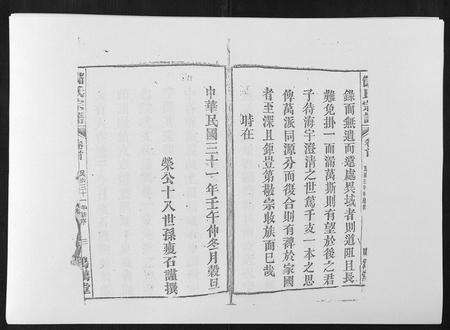 錄而無遺而遠處異域者則道阻且長
難免掛一而漏萬斯則有望於後之君
子待海宇澄清之世篤千支一本之思
俾萬派同源分而復合則有裨於家國
者至深且鉅豈第敬宗收族而已哉
時在
中華民國三十一年壬午仲冬月穀旦
榮公十八世孫應石謹撰
氏宗譜
卷首
堂